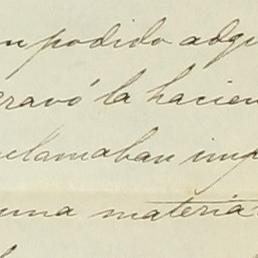 n podido adqu
gravó la hacien
clamaban imp
una materia